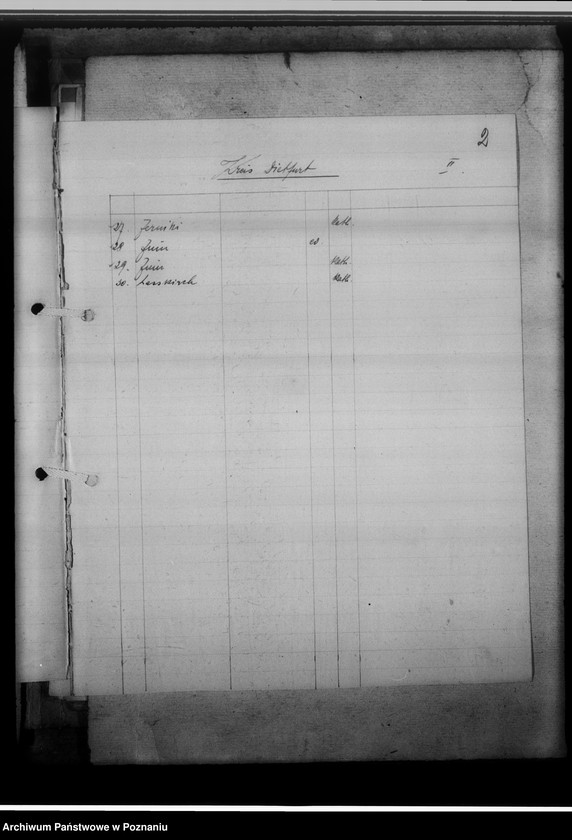 2
Kreis Dietfurt II.
27. Jerniki Kath.
28. Znin ev.
29. Znin Kath.
30. Lasskirch Kath.
Archiwum Państwowe w Poznaniu